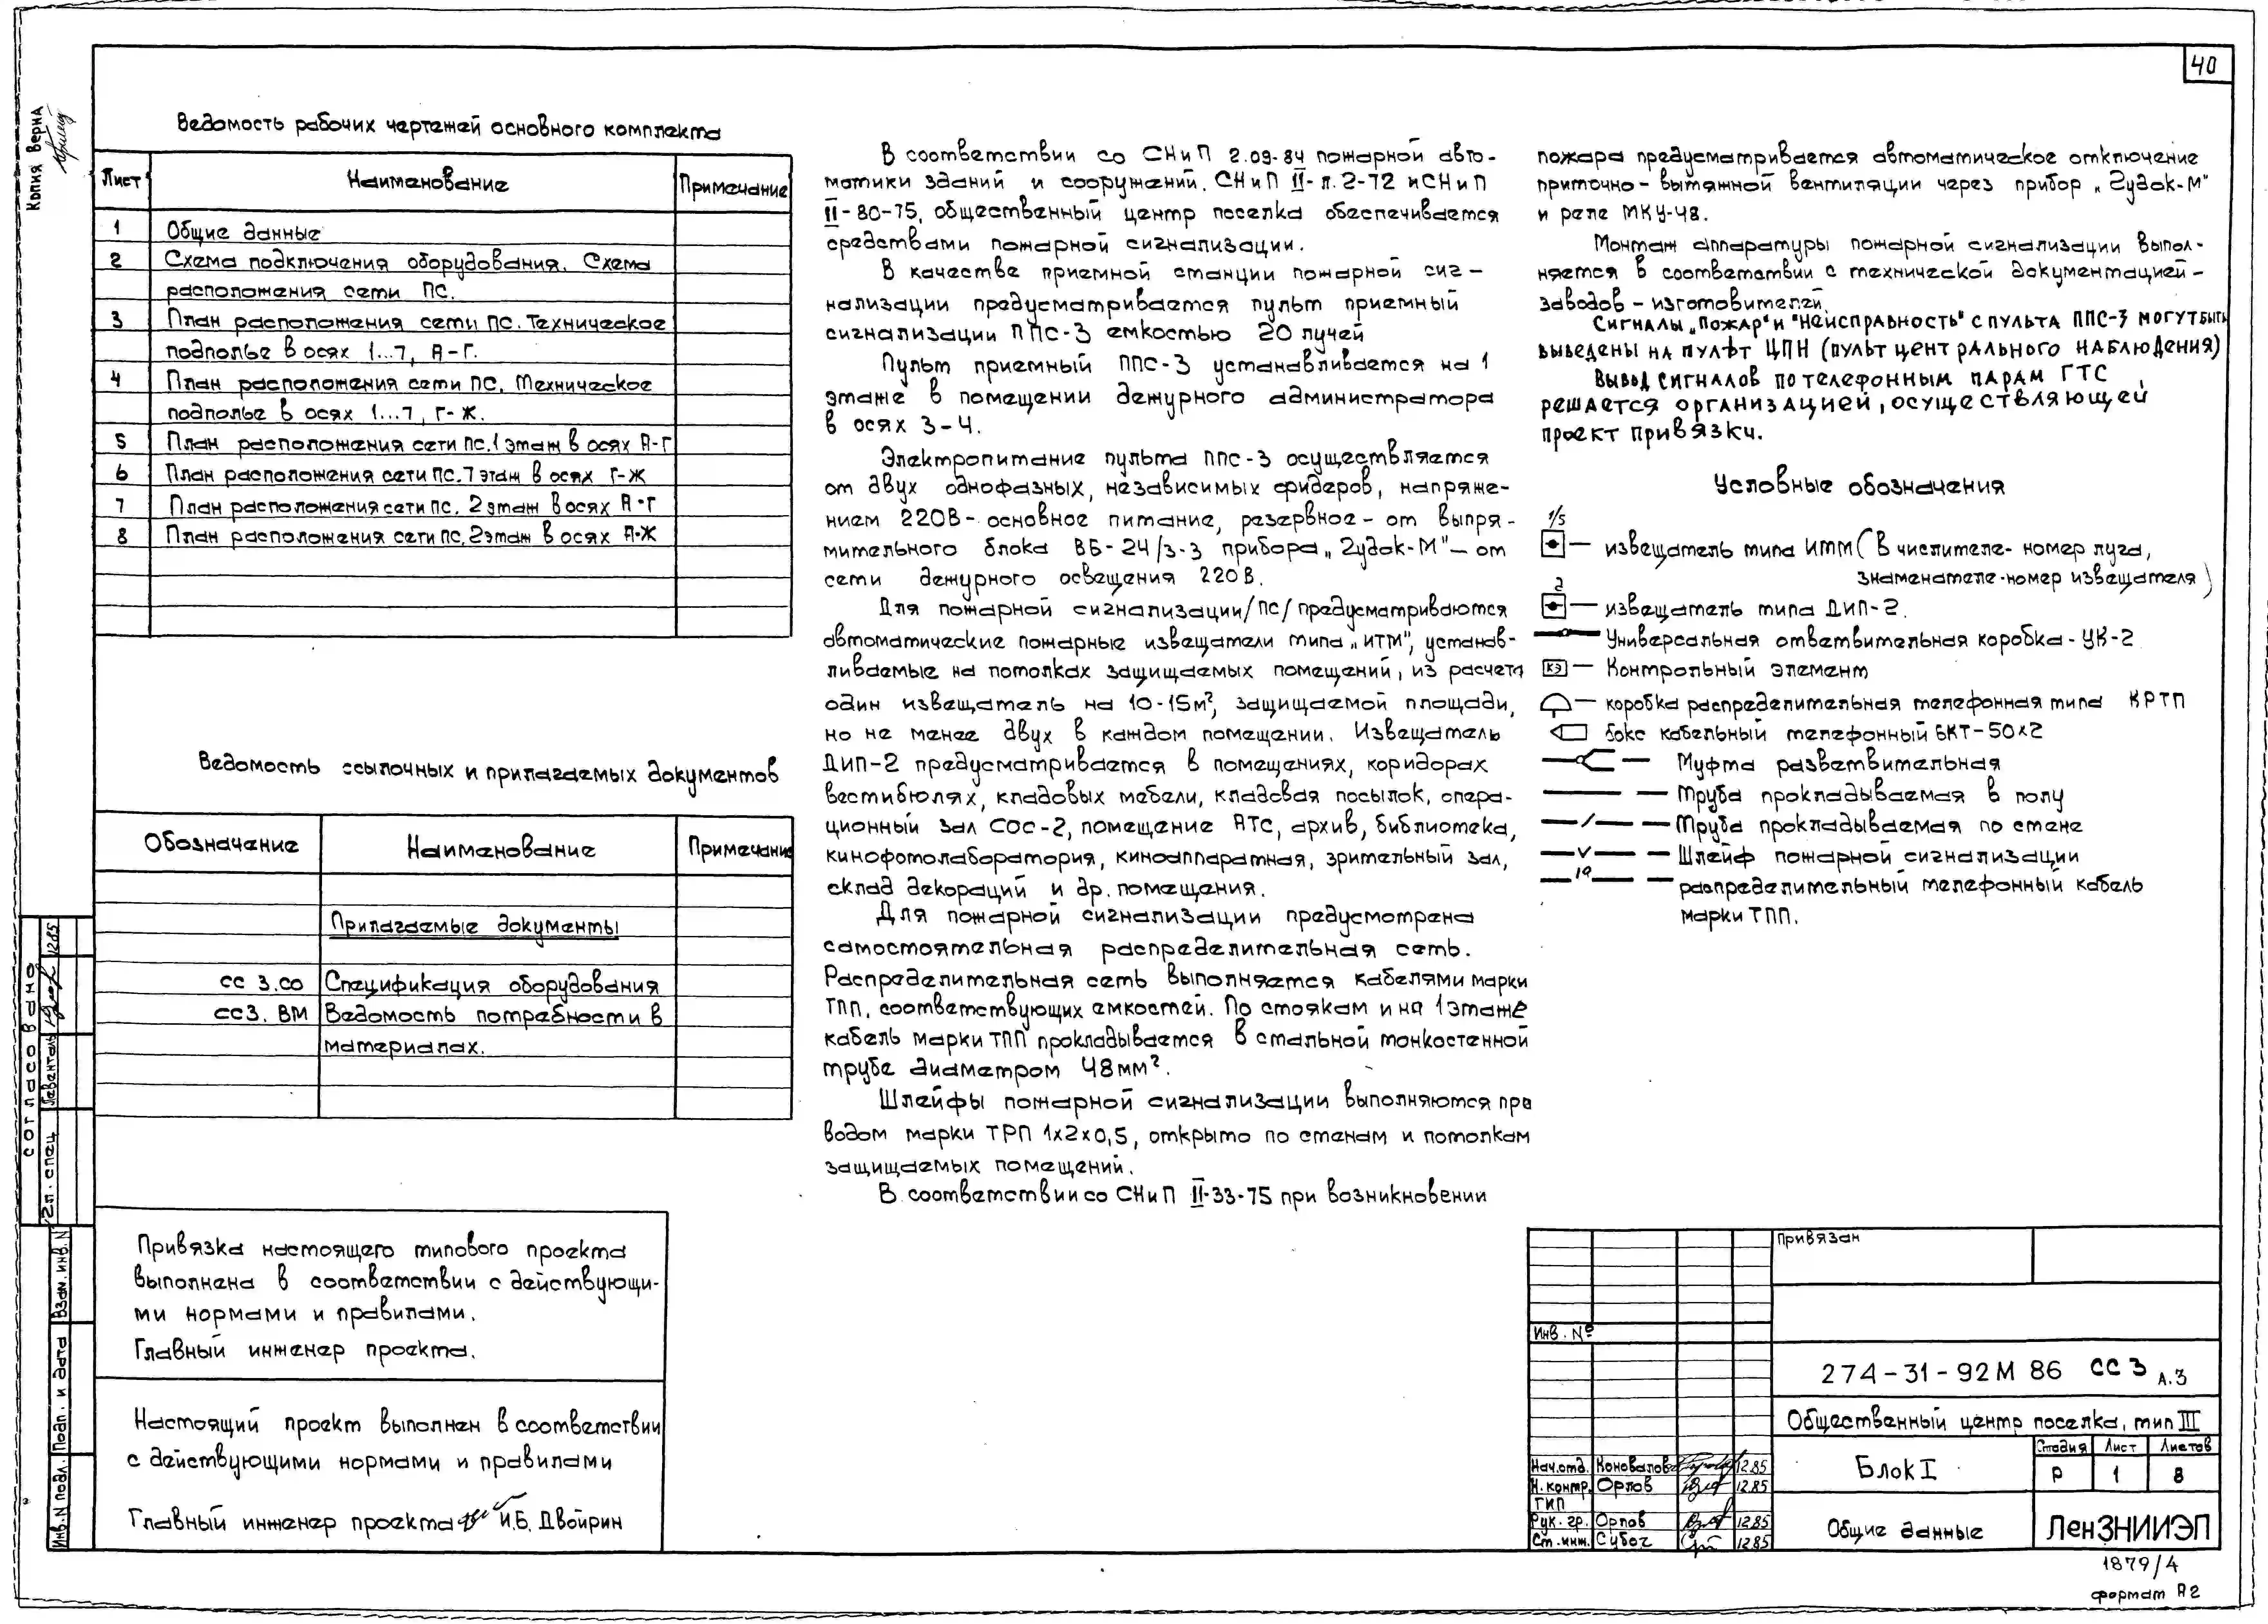 40
Копия верна
Ведомость рабочих чертежей основного комплекта
Лист Наименование Примечание
1 Общие данные
2 Схема подключения оборудования. Схема
расположения сети ПС.
3 План расположения сети ПС. Техническое
подполье в осях 1...7, А-Г.
4 План расположения сети ПС. Техническое
подполье в осях 1...7, Г-Ж.
5 План расположения сети ПС. 1 этаж в осях А-Г
6 План расположения сети ПС. 1 этаж в осях Г-Ж
7 План расположения сети ПС. 2 этаж в осях А-Г
8 План расположения сети ПС. 2 этаж в осях А-Ж
Ведомость ссылочных и прилагаемых документов
Обозначение Наименование Примечание
Прилагаемые документы
СС 3.СО Спецификация оборудования
СС3. ВМ Ведомость потребности в
материалах.
Привязка настоящего типового проекта
выполнена в соответствии с действующи-
ми нормами и правилами.
Главный инженер проекта.
Настоящий проект выполнен в соответствии
с действующими нормами и правилами
Главный инженер проекта И.Б. Двойрин
В соответствии со СНиП 2.09-84 пожарной авто-
матики зданий и сооружений. СНиП II-л.2-72 и СНиП
II-80-75, общественный центр поселка обеспечивается
средствами пожарной сигнализации.
В качестве приемной станции пожарной сиг-
нализации предусматривается пульт приемный
сигнализации ППС-3 емкостью 20 лучей
Пульт приемный ППС-3 устанавливается на 1
этаже в помещении дежурного администратора
в осях 3-4.
Электропитание пульта ППС-3 осуществляется
от двух однофазных, независимых фидеров, напряже-
нием 220В- основное питание, резервное - от выпря-
мительного блока ВБ-24/3-3 прибора „Гудок-М" - от
сети дежурного освещения 220 В.
Для пожарной сигнализации /ПС/ предусматриваются
автоматические пожарные извещатели типа „ИТМ", устанав-
ливаемые на потолках защищаемых помещений, из расчета
один извещатель на 10-15м², защищаемой площади,
но не менее двух в каждом помещении. Извещатель
ДИП-2 предусматривается в помещениях, коридорах
вестибюлях, кладовых мебели, кладовая посылок, опера-
ционный зал СОС-2, помещение АТС, архив, библиотека,
кинофотолаборатория, киноаппаратная, зрительный зал,
склад декораций и др. помещения.
Для пожарной сигнализации предусмотрена
самостоятельная распределительная сеть.
Распределительная сеть выполняется кабелями марки
ТПП, соответствующих емкостей. По стоякам и на 1 этаже
кабель марки ТПП прокладывается в стальной тонкостенной
трубе диаметром 48мм².
Шлейфы пожарной сигнализации выполняются про
водом марки ТРП 1х2х0,5, открыто по стенам и потолкам
защищаемых помещений.
В соответствии со СНиП II-33-75 при возникновении
пожара предусматривается автоматическое отключение
приточно-вытяжной вентиляции через прибор „Гудок-М"
и реле МКУ-48.
Монтаж аппаратуры пожарной сигнализации выпол-
няется в соответствии с технической документацией-
заводов-изготовителей.
Сигналы „Пожар" и "Неисправность" с пульта ППС-3 могут быть
выведены на пульт ЦПН (пульт центрального наблюдения)
Вывод сигналов по телефонным парам ГТС
решается организацией, осуществляющей
проект привязки.
Условные обозначения
1/5
— извещатель типа ИТМ (В числителе- номер луча,
знаменателе-номер извещателя)
2
— извещатель типа ДИП-2.
Универсальная ответвительная коробка - УК-2
КЭ — Контрольный элемент
— коробка распределительная телефонная типа КРТП
бокс кабельный телефонный БКТ-50х2
— Муфта разветвительная
— Труба прокладываемая в полу
— Труба прокладываемая по стене
— Шлейф пожарной сигнализации
— распределительный телефонный кабель
марки ТПП.
согласовано
Гл. спец. Левенталь 12.85
Инв. N подл. Подп. и дата Взам. инв. N
Привязан
Инв. №
274-31-92М 86 СС 3 А.3
Общественный центр поселка, тип III
Блок I
Стадия Лист Листов
Р 1 8
Общие данные
ЛенЗНИИЭП
Нач.отд. Коновалов 12.85
Н. контр. Орлов 12.85
ГИП
Рук. гр. Орлов 12.85
Ст. инж. Субоч 12.85
1879/4
формат А2